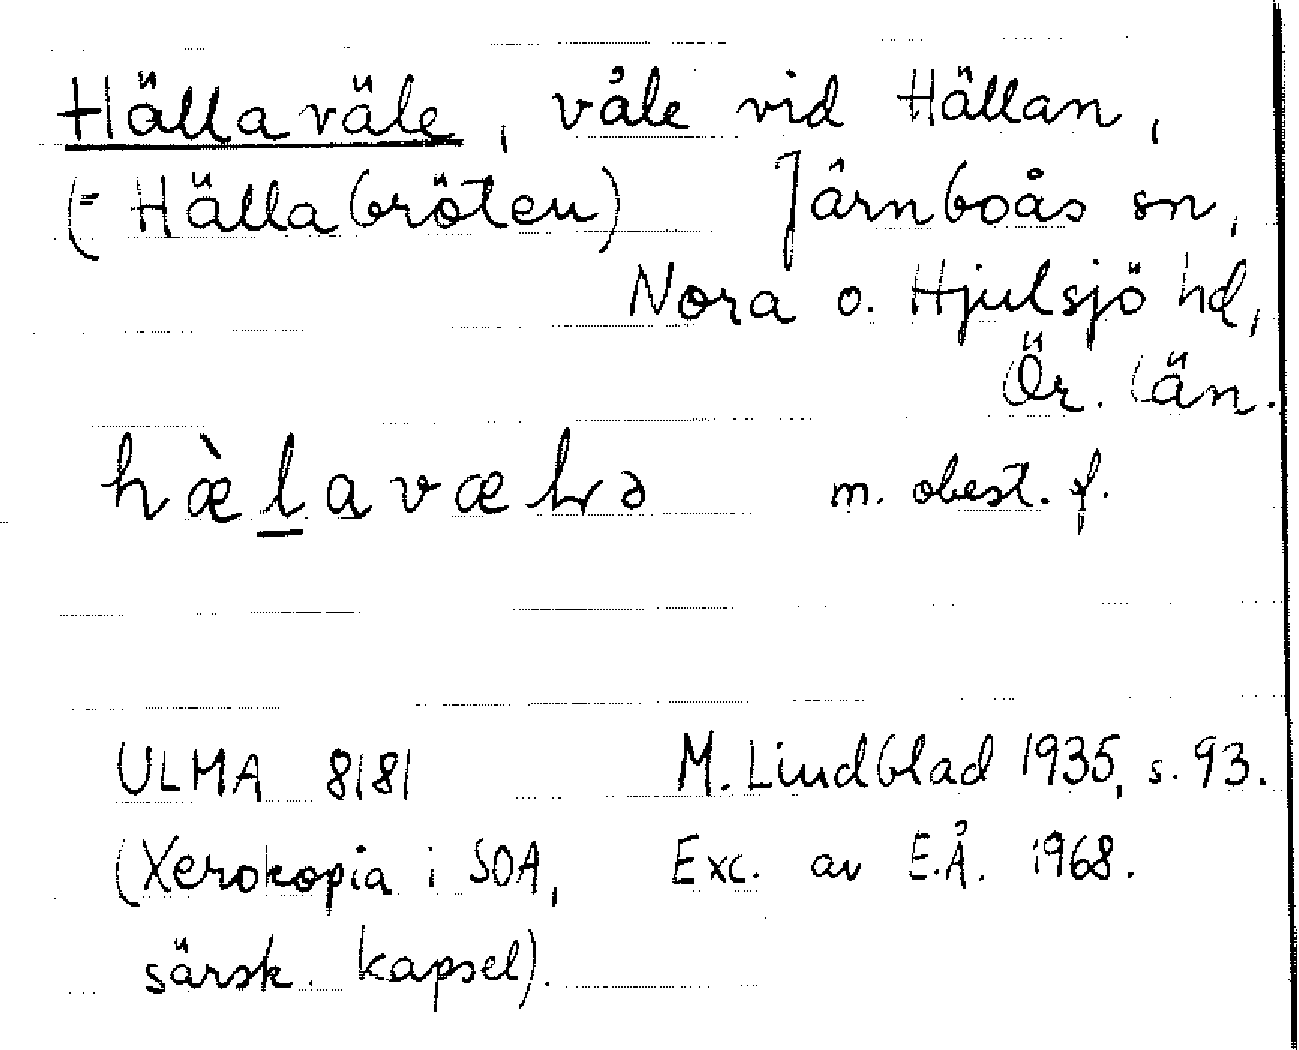 Hällaväle, våle vid Hällan,
(= Hällabröten) Järnboås sn,
Nora o. Hjulsjö hd,
Ör. län.
hæ̀l̲avælɹə m. obest. f.
ULMA 8181 M. Lindblad 1935, s. 93.
(Xerokopia i SOA, Exc. av E.Å. 1968.
särsk. kapsel).